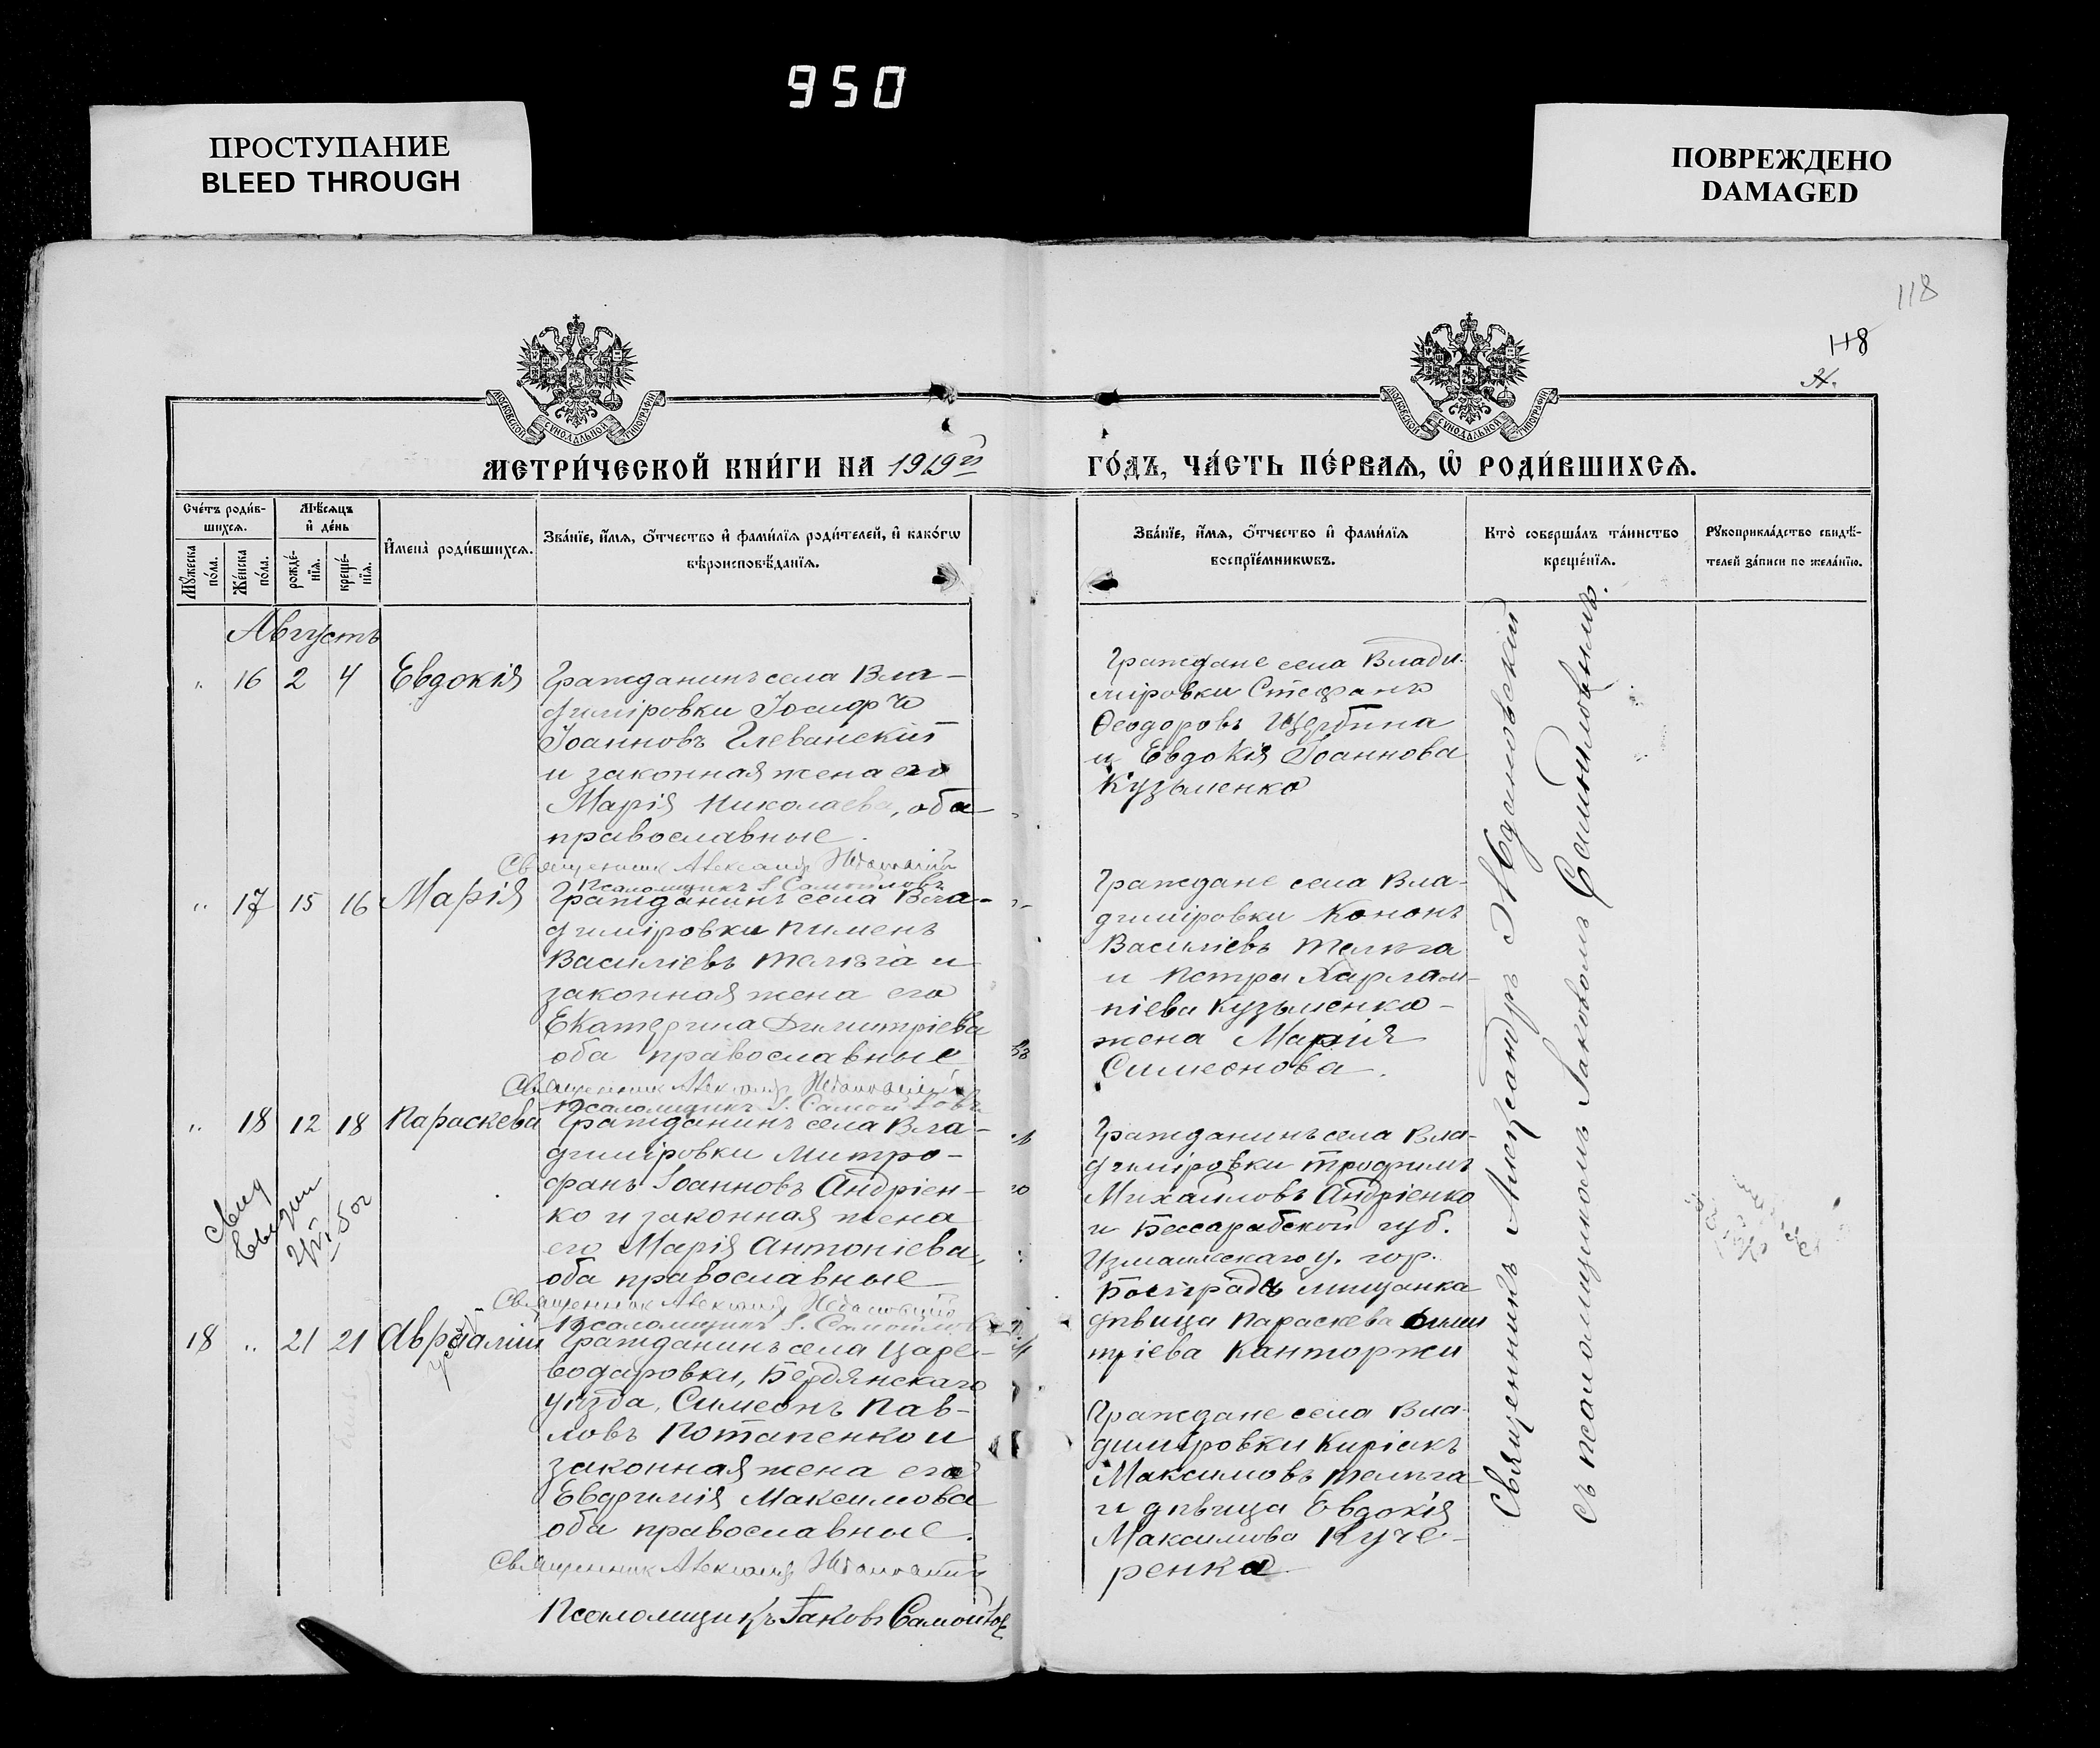 950
ПРОСТУПАНИЕ
BLEED THROUGH
ПОВРЕЖДЕНО
DAMAGED
118
118
МЕТРИ́ЧЕСКОЙ КНИ́ГИ НА 1919й
ГО́ДЪ, ЧА́СТЬ ПЕ́РВАѦ, Ѡ҆ РОДИ́ВШИХСѦ.
Сче́тъ роди́в-
шихсѧ.
Мѣ́сѧцъ
и҆ де́нь
Мꙋ́жеска
по́ла.
Же́нска
по́ла.
рожде́-
нїѧ.
креще́-
нїѧ.
И҆мена̀ роди́вшихсѧ.
Зва́нїе, и҆́мѧ, ѻ҆́тчество и҆ фами́лїѧ роди́телей, и҆ како́гѡ
вѣроисповѣ́данїѧ.
Зва́нїе, и҆́мѧ, ѻ҆́тчество и҆ фами́лїѧ
воспрїе́мникѡвъ.
Кто̀ соверша́лъ та́инство
креще́нїѧ.
Рꙋкоприкла́дство свидѣ́-
телей за́писи по жела́нїю.
Августъ
" 16 2 4 Евдокія
Гражданинъ села Вла-
диміровки Іосифъ
Іоанновъ Глеванскій
и законная жена его
Марія Николаева, оба
православные.
Священник Александр Ждановский
Псаломщикъ І. Самойловъ
Граждане села Влади-
міровки Стефанъ
Ѳеодоровъ Щербина
и Евдокія Іоаннова
Кузьменко
" 17 15 16 Марія
Гражданинъ села Вла-
диміровки Пименъ
Василіевъ Телѣга и
законная жена его
Екатерина Димитріева
оба православные
Священник Александр Ждановский
Псаломщикъ І. Самойловъ
Граждане села Вла-
диміровки Кононъ
Василіевъ Телѣга
и Петра Харлам-
піева Кузьменко-
жена Марія
Симеонова.
" 18 12 18 Параскева
Гражданинъ села Вла-
диміровки Митро-
фанъ Іоанновъ Андріен-
ко и законная жена
его Марія Антоніева,
оба православные
Священник Александр Ждановский
Псаломщикъ І. Самойловъ
Гражданинъ села Вла-
диміровки Трофимъ
Михайловъ Андріенко
и Бессарабской губ.
Измаильскаго у. гор.
Болградъ мищанка
дѣвица Параскева Дими
тріева Канторжи
18 " 21 21 Авраамій
Гражданинъ села Царе-
водаровки, Бердянскаго
уѣзда, Симеонъ Пав-
ловъ Потапенко и
законная жена его
Евфимія Максимова
оба православные.
Священник Александр Ждановский
Псаломщикъ Іаковъ Самойлов
Граждане села Вла-
диміровки Киріакъ
Максимовъ Телѣга
и дѣвица Евдокія
Максимова Куче-
ренко
Священникъ Александръ Ждановскій
съ псаломщикомъ Іаковомъ Самойловымъ.